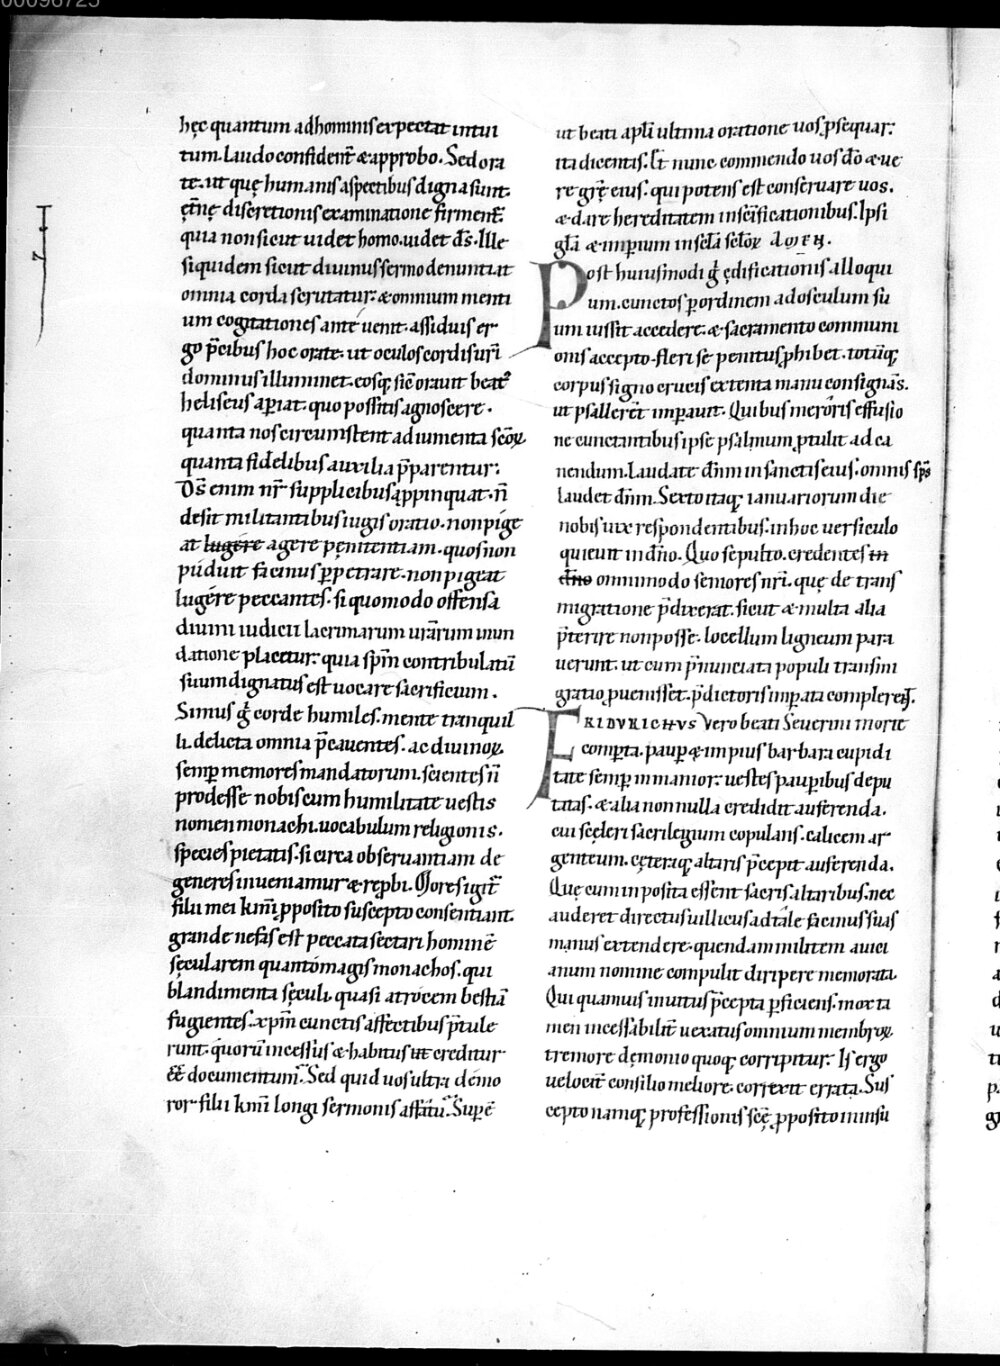 00096725
hęc quantum ad hominis expectat intui
tum. Laudo confident̄ & approbo. Sed ora
te. ut quę humanis aspectibus digna sunt.
ęt̄nę discretionis examinatione firment᷑.
quia non sicut uidet homo. uidet d̄s. Ille
siquidem sicut diuinus sermo denuntiat
omnia corda scrutatur. & omnium menti
um cogitationes ante uenit. assiduis er
go p̄cibus hoc orate. ut oculos cordis uri
dominus illuminet. eosq; sic̄ orauit beat᷒
heliseus aꝑiat. quo possitis agnoscere.
quanta nos circumstent adiumenta sc̄oꝝ
quanta fidelibus auxilia p̄parentur.
D̄s enim nr̄ supplicibus appinquat. n̄
desit militantibus iugis oratio. non pige
at lugere agere pęnitentiam. quos non
puduit facinus ꝑpetrare. non pigeat
lugére peccantes. si quomodo offensa
diuini iudicii lacrimarum urārum inun
datione placetur. quia sp̄m contribulatū
suum dignatus est uocare sacrificium.
Simus g̊ corde humiles. mente tranquil
li. delicta omnia p̄cauentes. ac diuinoꝝ
semꝑ memores mandatorum. scientes n̄
prodesse nobis cum humilitate uestis
nomen monachi. uocabulum religionis.
species pietatis. si circa obseruantiam de
generes inueniamur & rep̱bi. Mores igit᷑
filii mei km̄i ꝓposito suscepto consentiant.
grande nefas est peccata sectari hominē
sęcularem quantómagis monachos. qui
blandimenta sęculi. quasi atrocem bestiā
fugientes. xp̄m cunctis affectibus p̄tule
runt. quorū incessus & habitus ut creditur
eē documentum. Sed quid uos ultra demo
ror filii km̄i longi sermonis affātu. Suꝑē
ut beati apl̄i ultima oratione uos ꝓsequar.
ita dicentis. Et nunc commendo uos dō & ue
re grę̄ eius. qui potens est conseruare uos.
& dare hereditatem in sc̄ificationibus. Ipsi
gl̄a & imꝑium in sc̄la sc̄loꝝ AMEN.
Post huiusmodi g̊ ędificationis alloqui
um. cunctos ꝑ ordinem ad osculum su
um iussit accedere. & sacramento communi
onis accepto. fleri se penitus ꝓhibet. totūq;
corpus signo crucis extenta manu consignās.
ut psallerēt imꝑauit. Quibus meroris effusio
ne cunctantibus ipse psalmum ꝓtulit ad ca
nendum. Laudate dn̄m in sanctis eius. omnis sp̄s
laudet dn̄m. Sexto itaq; ianuariorum die
nobis uix respondentibus. in hoc uersiculo
quieuit in dn̄o. Quo sepulto. credentes in
dn̄o omnimodo seniores nr̄i. quę de trans
migratione p̄dixerat. sicut & multa alia
p̄terire non posse. locellum ligneum para
uerunt. ut cum p̄nunciata populi transmi
gratio ꝓuenisset. p̄dictoris imꝑata complerent.
FRIDVRICHVS Vero beati Seuerini morte
comꝑta. pauꝑ & impius barbara cupidi
tate semꝑ inmanior. uestes pauꝑibus depu
tatas. & alia nonnulla credidit auferenda.
cui sceleri sacrilegium copulans. calicem ar
genteum. cęteraq; altaris p̄cepit auferenda.
Quę cum inposita essent sacris altaribus. nec
auderet directus uillicus ad tále facinus suas
manus extendere. quendam militem auici
anum nomine compulit diripere memorata.
Qui quamuis inuitus p̄cepta ꝑficiens. mox ta
men incessabilit᷑ uexatus omnium membroꝝ
tremore dęmonio quoq; corripitur. Is ergo
velocit᷑ consilio meliore. correxit errata. Sus
cepto namq; professionis sc̄ę ꝓposito in insū